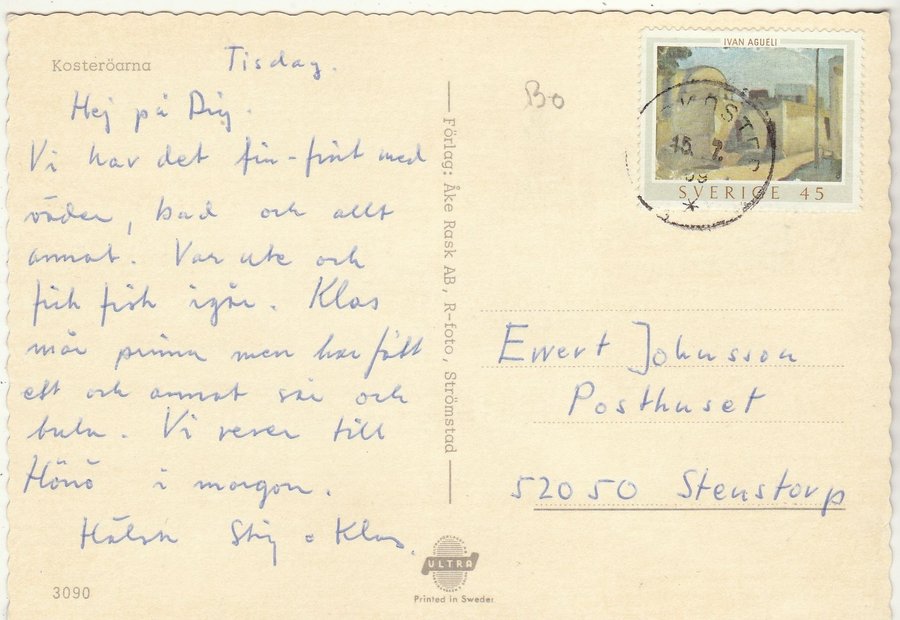 Kosteröarna
Tisdag.
Hej på Dig.
Vi har det fin-fint med
väder, bad och allt
annat. Var ute och
fick fisk igår. Klas
mår prima men har fått
ett och annat sår och
bula. Vi reser till
Hönö i morgon.
Hälsn Stig o Klas.
3090
Förlag: Åke Rask AB, R-foto, Strömstad
ULTRA
Printed in Sweden
Bo
IVAN AGUELI
SVERIGE 45
15. 7.
69
Ewert Johnsson
Posthuset
52050 Stenstorp